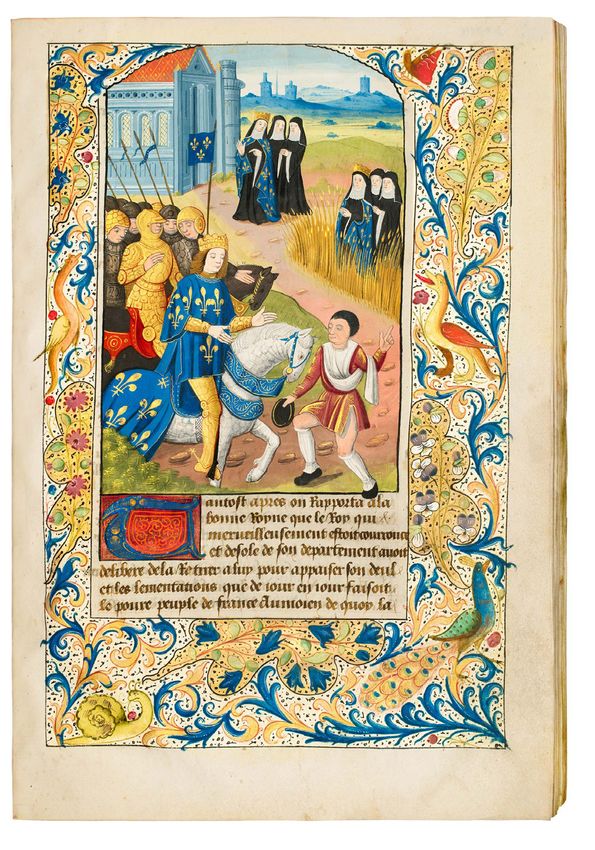 Tantost apres on Rapporta a la
bonne Royne que le Roy qui
merueilleusement estoit courrouce
et desole de son departement auoit
delibere de la Retirer a luy pour appaiser son deul
et les lementations que de iour en iour faisoit
Le poure peuple de france Au moien de quoy la